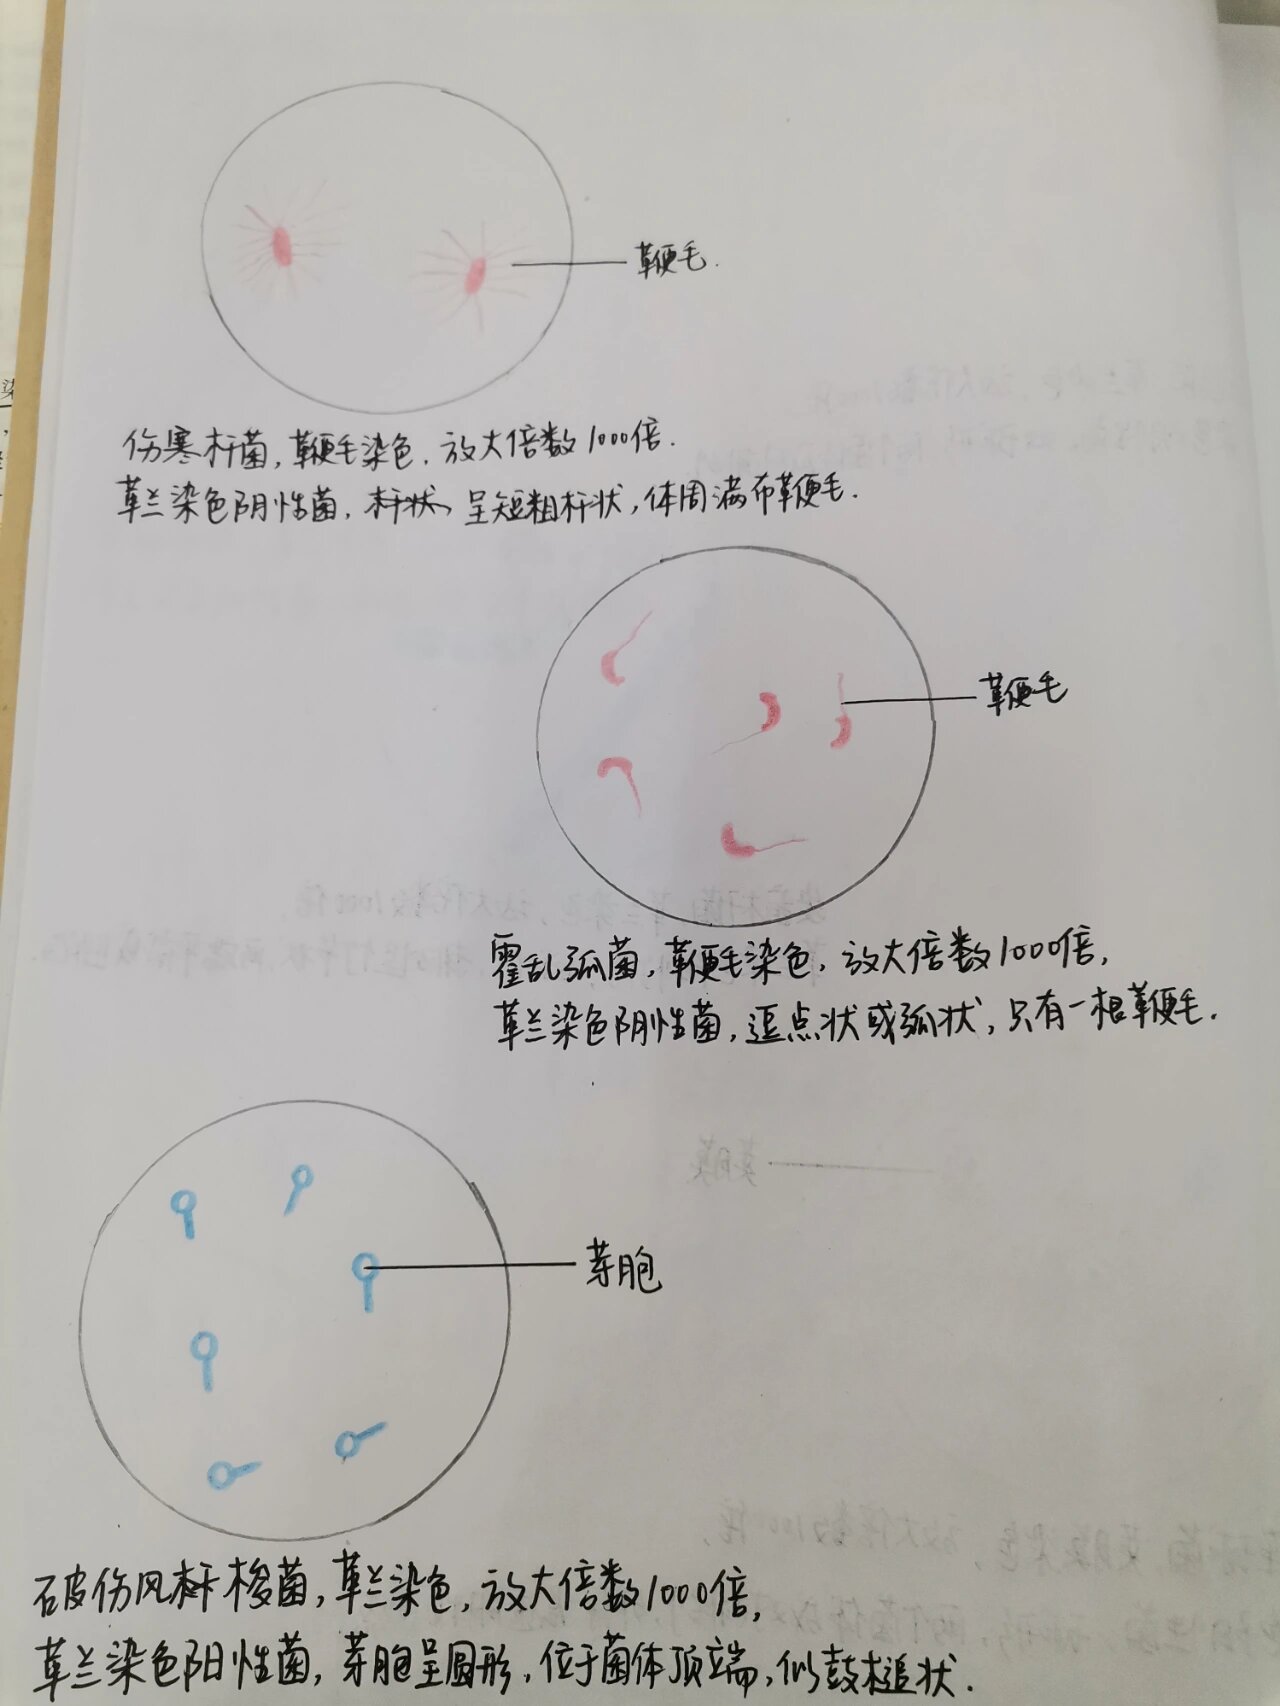 鞭毛.
伤寒杆菌,鞭毛染色.放大倍数1000倍.
革兰染色阴性菌,杆状,呈短粗杆状,体周满布鞭毛.
鞭毛
霍乱弧菌,鞭毛染色,放大倍数1000倍,
革兰染色阴性菌,逗点状或弧状,只有一根鞭毛.
芽胞
破伤风杆梭菌,革兰染色,放大倍数1000倍,
革兰染色阳性菌,芽胞呈圆形,位于菌体顶端,似鼓槌状.